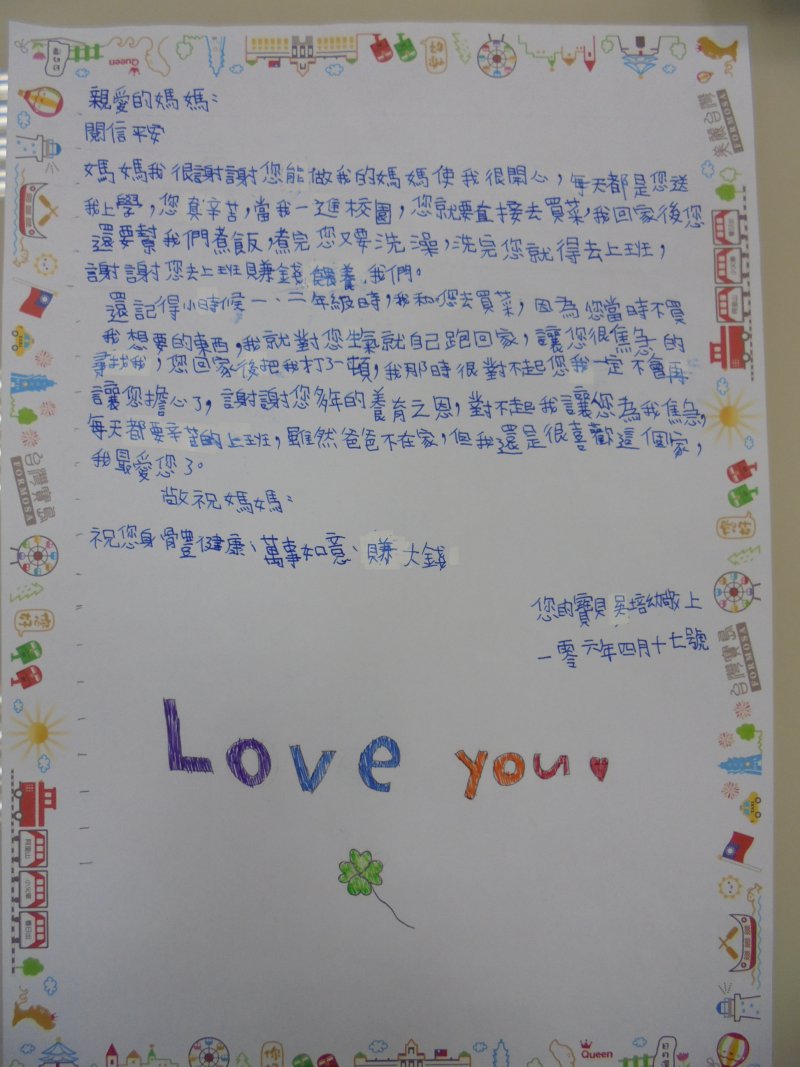 親愛的媽媽：
閱信平安
媽媽我很謝謝您能做我的媽媽使我很開心，每天都是您送
我上學，您真辛苦，當我一進校園，您就要直接去買菜，我回家後您
還要幫我們煮飯，煮完您又要洗澡，洗完您就得去上班，
謝謝您去上班賺錢餵養我們。
還記得小時候一、二年級時，我和您去買菜，因為您當時不買
我想要的東西，我就對您生氣就自己跑回家，讓您很焦急的
尋找我，您回家後把我打了一頓，我那時很對不起您我一定不會再
讓您擔心了，謝謝您多年的養育之恩，對不起我讓您為我焦急，
每天都要辛苦的上班，雖然爸爸不在家，但我還是很喜歡這個家，
我最愛您了。
敬祝媽媽：
祝您身體健康、萬事如意、賺大錢
您的寶貝吳培幼敬上
一零六年四月十七號
Love you
Queen
你好
美麗台灣
FORMOSA
台灣寶島
FORMOSA
你好
阿里山
小火車
看日出
你好
台灣寶島
FORMOSA
TAXI
你好
Queen